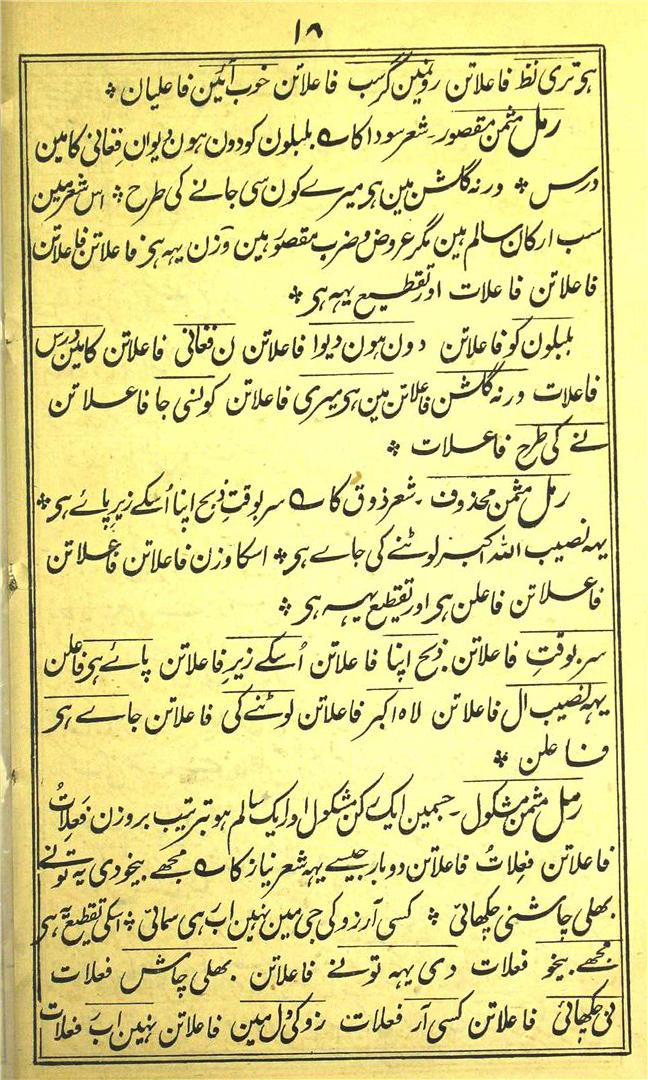 ۱۸
ہو تری نظ فاعلاتن رو نمین گر سب فاعلاتن خوب آئین فاعلیان ٭
رمل مثمن مقصور۔ شعر سودا کا ؎ بلبلون کو دون ہون دیوان فغانی کا مین
درس ٭ ورنہ گلشن مین ہو میرے کون سی جانے کی طرح ٭ اس شعر مین
سب ارکان سالم ہین مگر عروض و ضرب مقصور ہین وزن یہہ ہو فاعلاتن فاعلاتن
فاعلاتن فاعلات اور تقطیع یہہ ہی ٭
بلبلون کو فاعلاتن دون ہون دیوا فاعلاتن ن فغانی فاعلاتن کا مین درس
فاعلات ورنہ گلشن فاعلاتن مین ہو میری فاعلاتن کونسی جا فاعلاتن
نے کی طرح فاعلات ٭
رمل مثمن محذوف۔ شعر ذوق کا ؎ سر بوقتِ ذبح اپنا اُسکے زیر پاے ہی ٭
یہہ نصیب اللہ اکبر لوٹنے کی جاے ہی ٭ اسکا وزن فاعلاتن فاعلاتن
فاعلاتن فاعلن ہی اور تقطیع یہہ ہی ٭
سر بوقتِ فاعلاتن ذبح اپنا فاعلاتن اُسکے زیر فاعلاتن پاے ہی فاعلن
یہہ نصیب ال فاعلاتن لاہ اکبر فاعلاتن لوٹنے کی فاعلاتن جاے ہی
فاعلن ٭
رمل مثمن مشکول۔ جسمین ایک رکن مشکول اور ایک سالم ہو بترتیب بر وزن فعلاتُ
فاعلاتن فعلاتُ فاعلاتن دوبار جیسے یہہ شعر نیاز کا ؎ مجھے بیخودی یہ تونے
بھلی چاشنی چکھائی ٭ کسی آرزو کی جی مین نہین اب ہی سمائی ٭ اسکی تقطیع یہ ہی
مجھے بیخو فعلات دی یہہ تونے فاعلاتن بھلی چاش فعلات
نی چکھائی فاعلاتن کسی آر فعلات زو کی دل مین فاعلاتن نہین اب فعلات